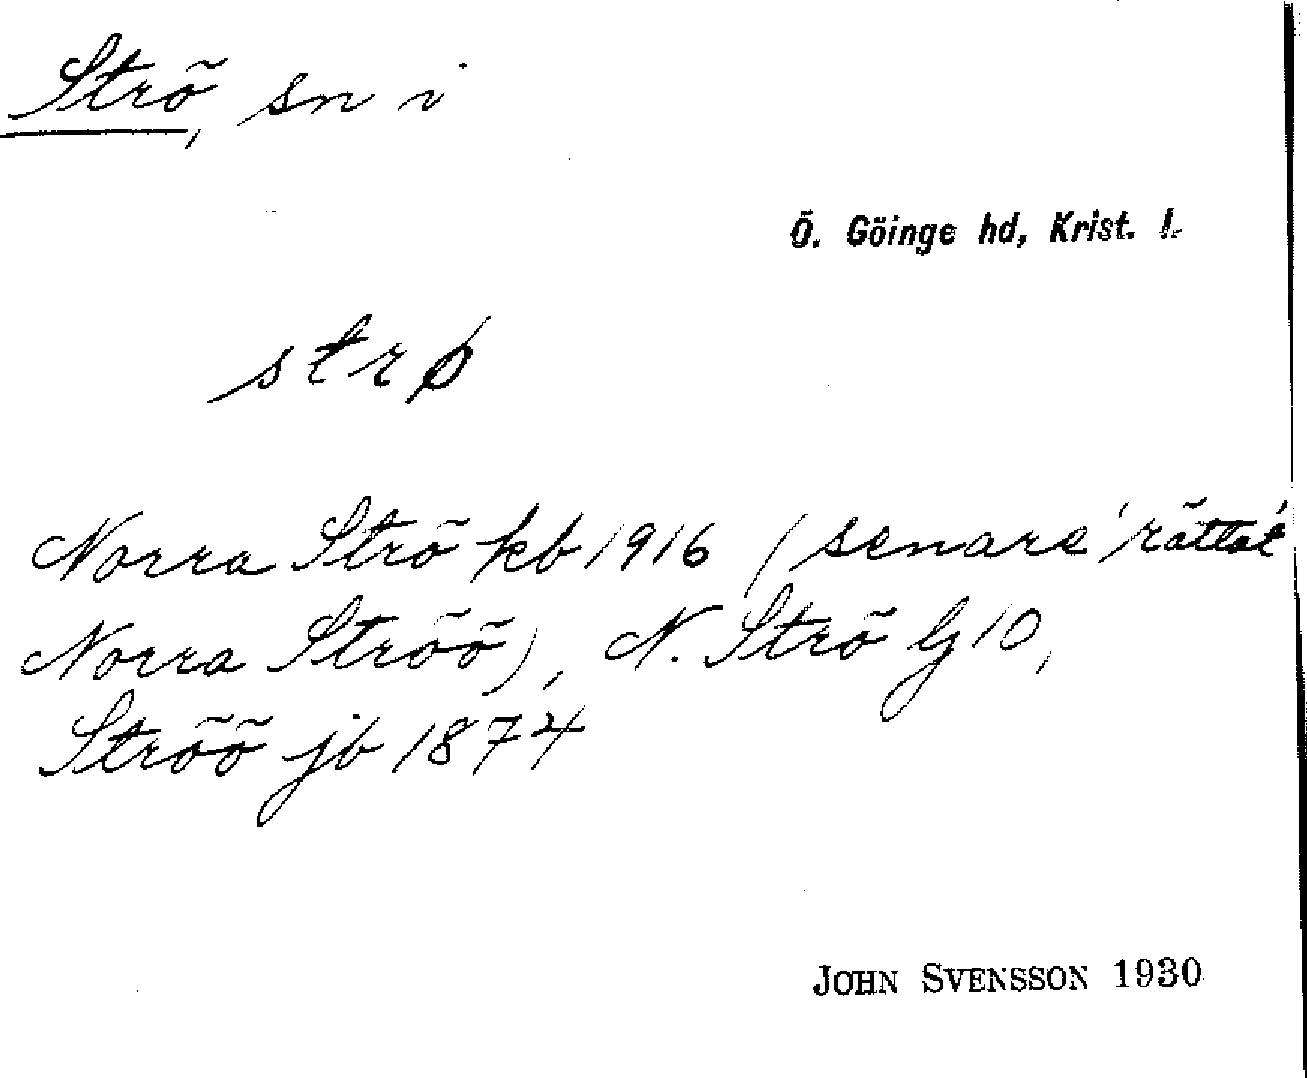 Strö, sn i
Ö. Göinge hd, Krist. l.
strø
Norra Strö kb 1916 (senare rättat
Norra Ströö), N. Strö Gj 10,
Ströö jb 1874
JOHN SVENSSON 1930